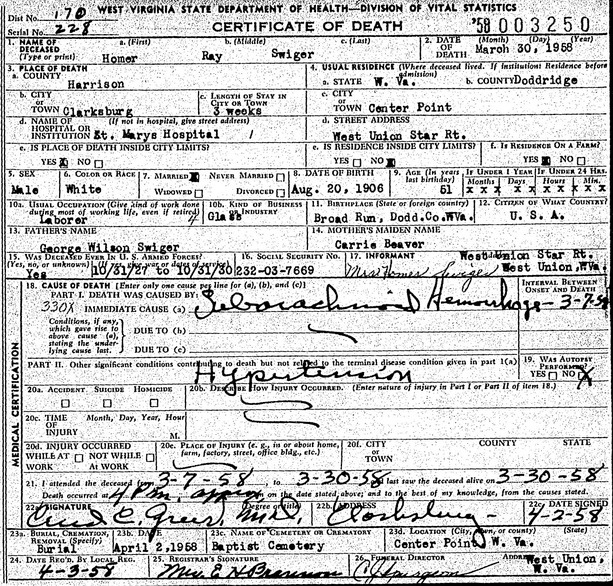 WEST VIRGINIA STATE DEPARTMENT OF HEALTH—DIVISION OF VITAL STATISTICS
Dist No. 170
CERTIFICATE OF DEATH
'58 003250
Serial No. 228
1. NAME OF DECEASED (Type or print) a. (First) b. (Middle) c. (Last)
Homer Ray Swiger
2. DATE OF DEATH (Month) (Day) (Year)
March 30, 1958
3. PLACE OF DEATH
a. COUNTY
Harrison
4. USUAL RESIDENCE (Where deceased lived. If institution: Residence before admission)
a. STATE W. Va. b. COUNTY Doddridge
b. CITY OR TOWN Clarksburg
c. LENGTH OF STAY IN CITY OR TOWN
3 weeks
c. CITY OR TOWN Center Point
d. NAME OF HOSPITAL OR INSTITUTION (If not in hospital, give street address)
St. Marys Hospital
d. STREET ADDRESS
West Union Star Rt.
e. IS PLACE OF DEATH INSIDE CITY LIMITS?
YES NO
e. IS RESIDENCE INSIDE CITY LIMITS?
YES NO
f. IS RESIDENCE ON A FARM?
YES NO
5. SEX
Male
6. COLOR OR RACE
White
7. MARRIED NEVER MARRIED
WIDOWED DIVORCED
8. DATE OF BIRTH
Aug. 20, 1906
9. AGE (In years last birthday)
51
IF UNDER 1 YEAR
Months Days
x x x x
IF UNDER 24 HRS.
Hours Min.
x x x x
10a. USUAL OCCUPATION (Give kind of work done during most of working life, even if retired)
Laborer 4
10b. KIND OF BUSINESS OR INDUSTRY
Glass
11. BIRTHPLACE (State or foreign country)
Broad Run, Dodd.Co.WVa.
12. CITIZEN OF WHAT COUNTRY?
U. S. A.
13. FATHER'S NAME
George Wilson Swiger
14. MOTHER'S MAIDEN NAME
Carrie Beaver
15. WAS DECEASED EVER IN U.S. ARMED FORCES?
(Yes, no, or unknown) (If yes, give war or dates of service)
Yes 10/31/27 to 10/31/30
16. SOCIAL SECURITY NO.
232-03-7669
17. INFORMANT
Mrs. Homer Swiger
West Union Star Rt.
West Union, W.Va.
18. CAUSE OF DEATH [Enter only one cause per line for (a), (b), and (c)]
INTERVAL BETWEEN ONSET AND DEATH
PART I. DEATH WAS CAUSED BY:
330X IMMEDIATE CAUSE (a) Subarachnoid Hemorrhage - 3-7-58
Conditions, if any, which gave rise to above cause (a), stating the underlying cause last.
DUE TO (b)
DUE TO (c)
PART II. Other significant conditions contributing to death but not related to the terminal disease condition given in part 1(a)
Hypertension
19. WAS AUTOPSY PERFORMED?
YES NO X
MEDICAL CERTIFICATION
20a. ACCIDENT SUICIDE HOMICIDE
20b. DESCRIBE HOW INJURY OCCURRED. (Enter nature of injury in Part I or Part II of item 18.)
20c. TIME OF INJURY Month, Day, Year, Hour
M.
20d. INJURY OCCURRED
WHILE AT WORK NOT WHILE AT WORK
20e. PLACE OF INJURY (e. g., in or about home, farm, factory, street, office bldg., etc.)
20f. CITY OR TOWN COUNTY STATE
21. I attended the deceased from 3-7-58, to 3-30-58 last saw the deceased alive on 3-30-58
Death occurred at 4 P.M. approx on the date stated above; and to the best of my knowledge, from the causes stated.
22a. SIGNATURE (Degree or title)
M.D.
22b. ADDRESS
Clarksburg
22c. DATE SIGNED
4-2-58
23a. BURIAL, CREMATION, REMOVAL (Specify)
Burial
23b. DATE
April 2, 1958
23c. NAME OF CEMETERY OR CREMATORY
Baptist Cemetery
23d. LOCATION (City, town, or county) (State)
Center Point, W. Va.
24. DATE REC'D. BY LOCAL REG.
4-3-58
25. REGISTRAR'S SIGNATURE
26. FUNERAL DIRECTOR
ADDRESS
West Union, W. Va.